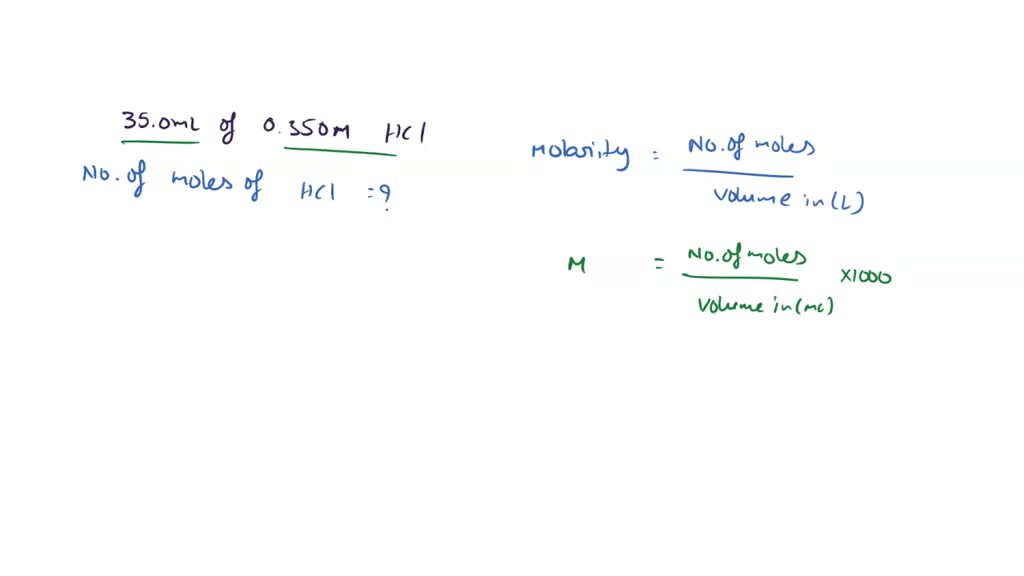 35.0mL of 0.350M HCl
No. of moles of HCl = ?
Molarity = No. of moles
volume in (L)
M = No. of moles ×1000
volume in (mL)